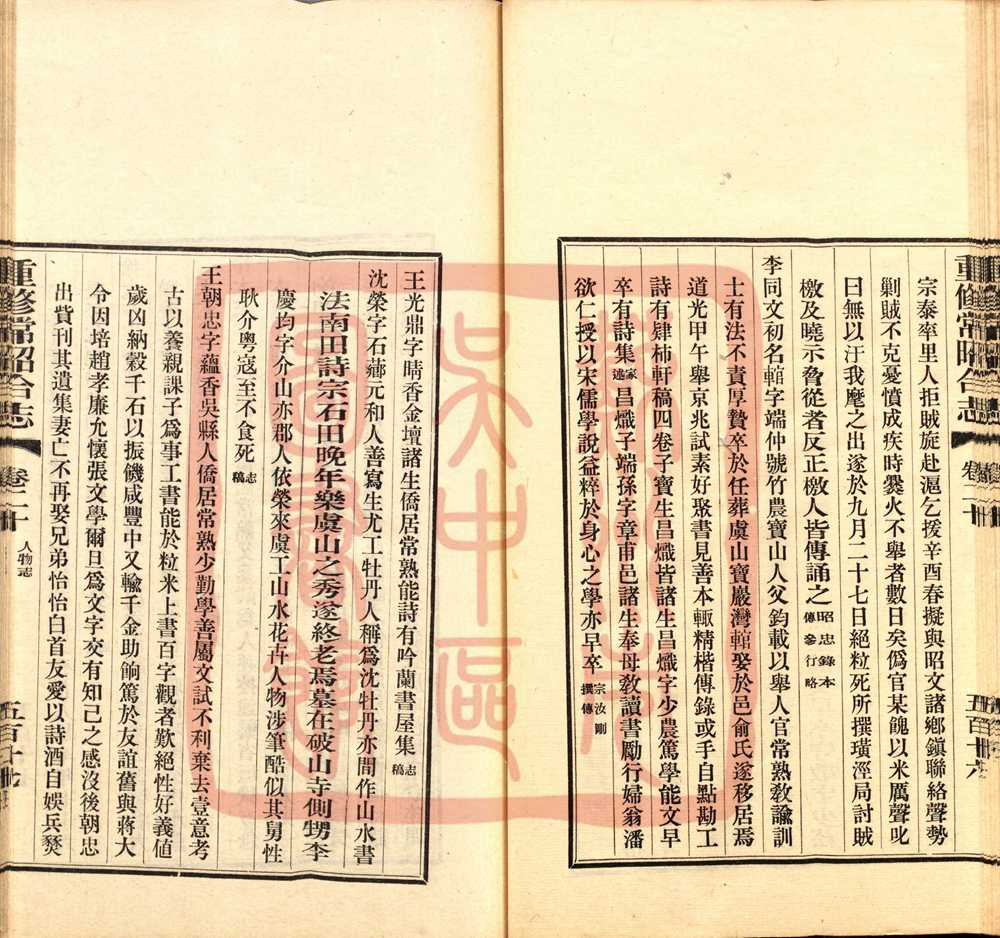 宗泰率里人拒賊旋赴滬乞援辛酉春擬與昭文諸鄉鎭聯絡聲勢
剿賊不克憂憤成疾時爨火不舉者數日矣僞官某餽以米厲聲叱
曰無以汙我麾之出遂於九月二十七日絕粒死所撰璜涇局討賊
檄及曉示脅從者反正檄人皆傳誦之昭忠錄本傳參行略
李同文初名𨋎字端仲號竹農寶山人父鈞載以舉人官常熟敎諭訓
士有法不責厚贄卒於任葬虞山寶巖灣娶於邑俞氏遂移居焉
道光甲午舉京兆試素好聚書見善本輒精楷傳錄或手自點勘工
詩有肄柿軒稿四卷子寶生昌熾皆諸生昌熾字少農篤學能文早
卒有詩集家述昌熾子端孫字章甫邑諸生奉母敎讀書勵行婦翁潘
欲仁授以宋儒學說益粹於身心之學亦早卒宗汝剛撰傳
重修常昭合志 卷二十 人物志 五百十七
王光鼎字晴香金壇諸生僑居常熟能詩有吟蘭書屋集志稿
沈榮字石薌元和人善寫生尤工牡丹人稱爲沈牡丹亦間作山水書
法南田詩宗石田晚年樂虞山之秀遂終老焉墓在破山寺側甥李
慶均字介山亦郡人依榮來虞工山水花卉人物涉筆酷似其舅性
耿介粵寇至不食死志稿
王朝忠字蘊香吳縣人僑居常熟少勤學善屬文試不利棄去壹意考
古以養親課子爲事工書能於粒米上書百字觀者歎絕性好義値
歲凶納穀千石以振饑咸豐中又輸千金助餉篤於友誼舊與蔣大
令因培趙孝廉允懷張文學爾旦爲文字交有知己之感沒後朝忠
出貲刊其遺集妻亡不再娶兄弟怡怡白首友愛以詩酒自娛兵燹